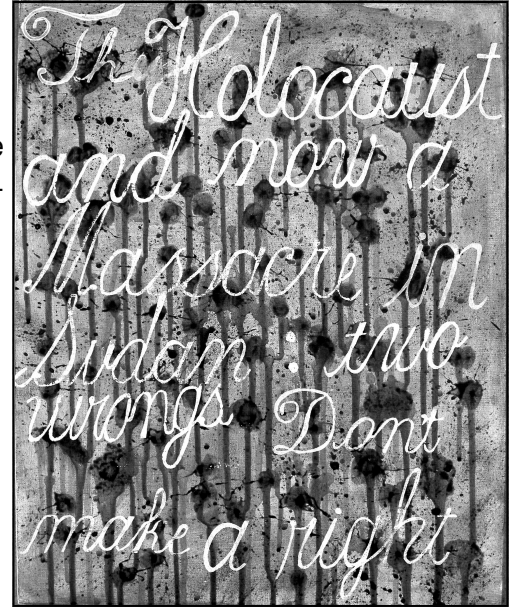 The Holocaust
and now a
Massacre in
Sudan : two
wrongs Dont
make a right